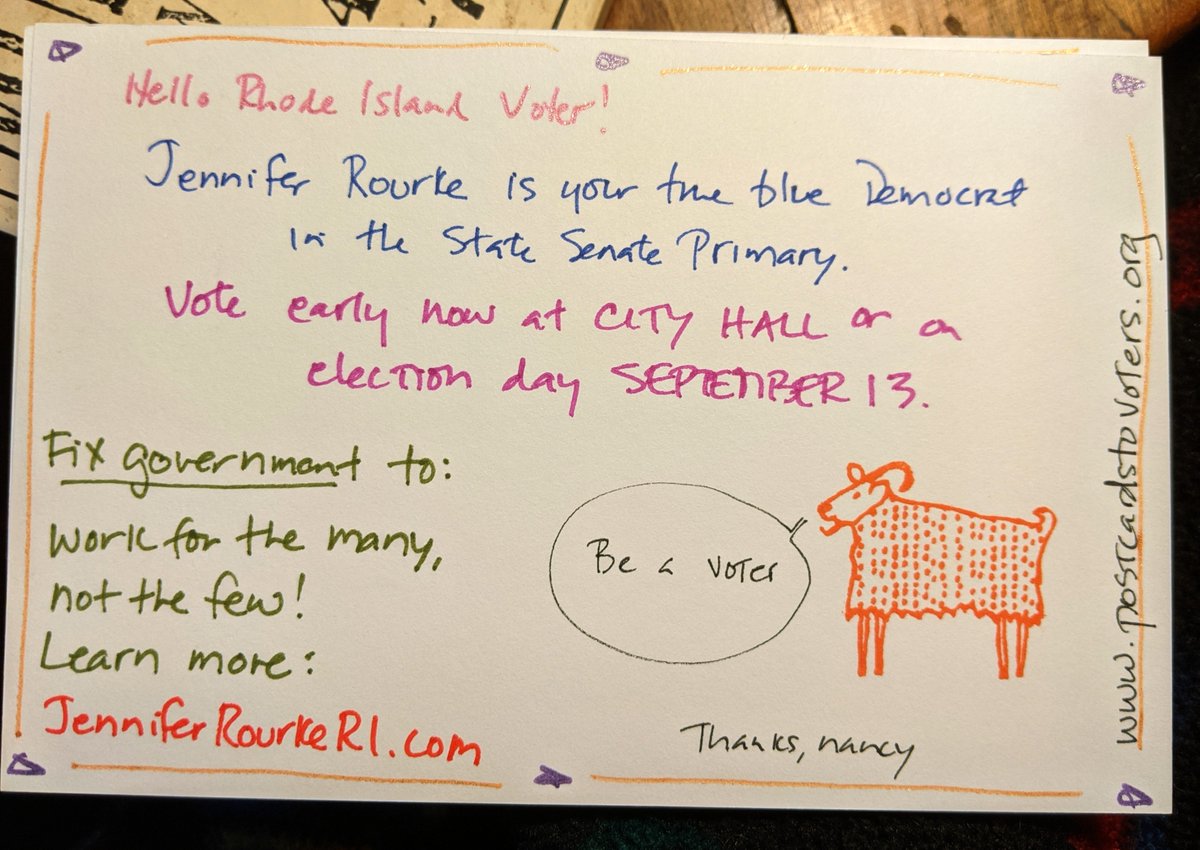 Hello Rhode Island Voter!
Jennifer Rourke is your true blue Democrat
in the State Senate Primary.
Vote early now at CITY HALL or on
election day SEPTEMBER 13.
Fix government to:
work for the many,
not the few!
Learn more:
JenniferRourkeRI.com
Be a voter
Thanks, nancy
www.postcardstovoters.org